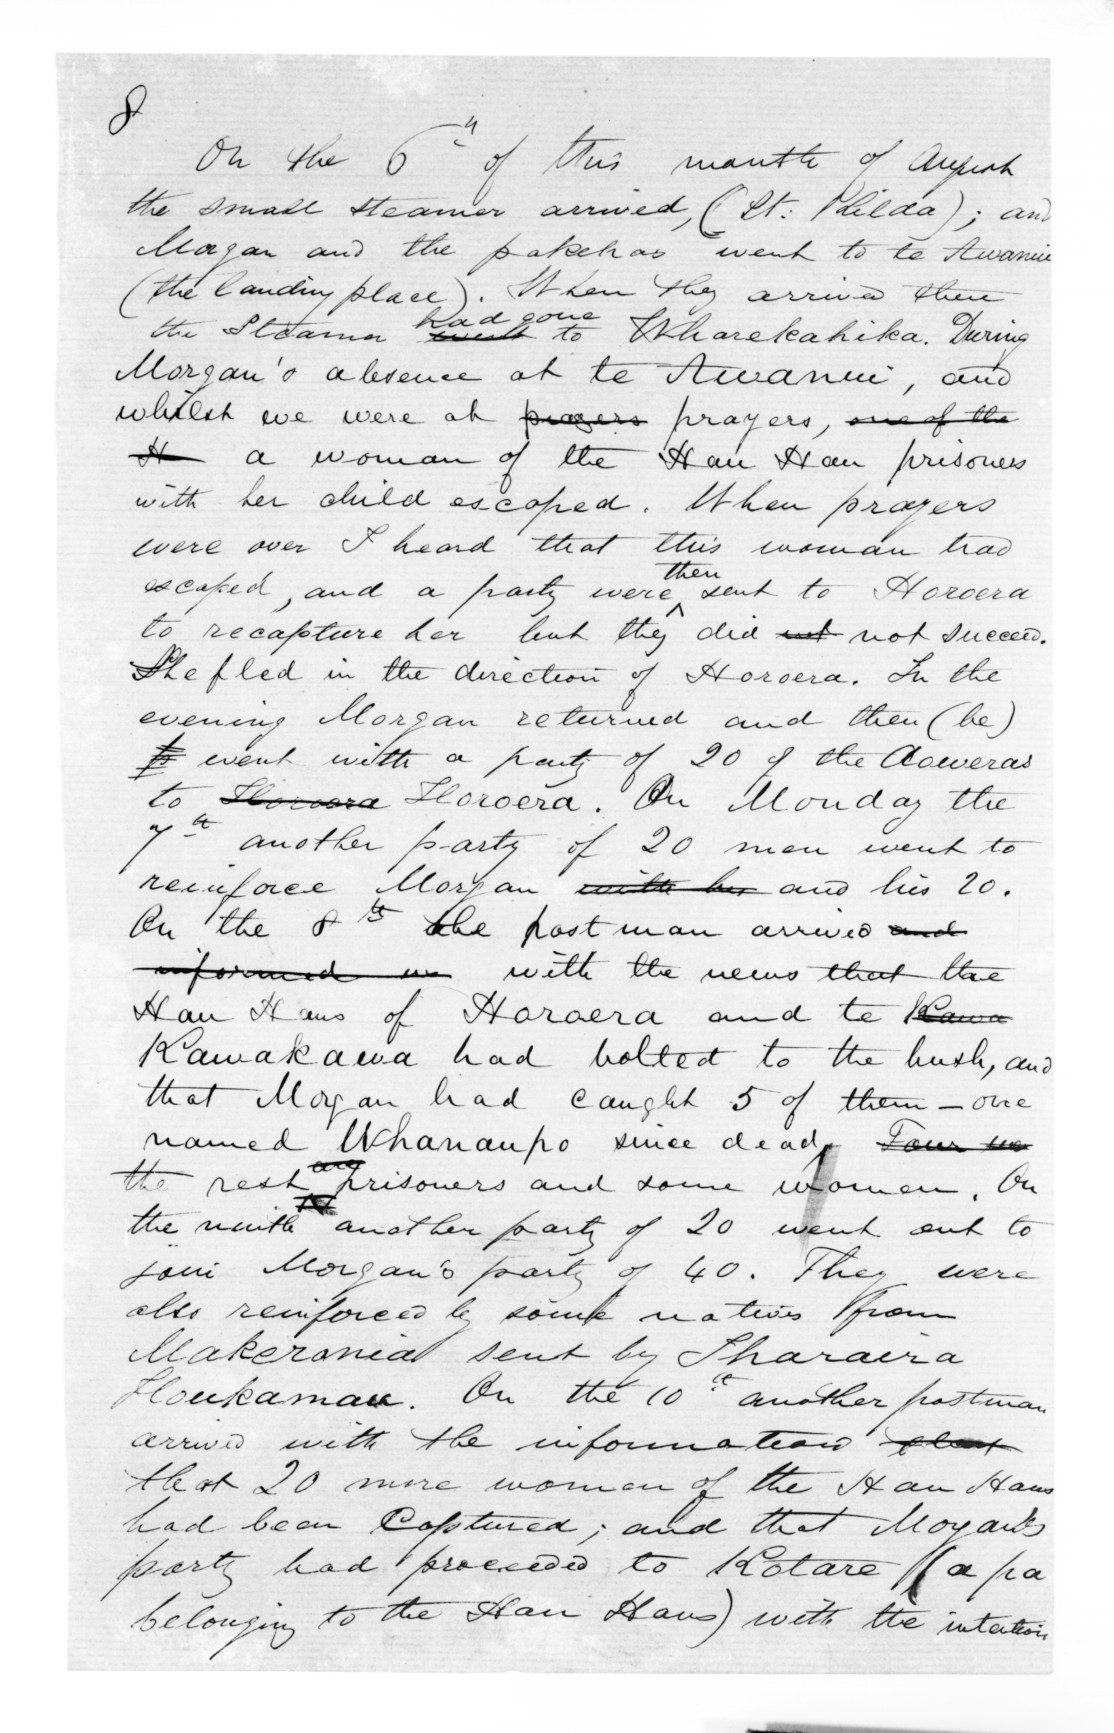 8
On the 6th of this month of August
the small steamer arrived, (St: Kilda); and
Morgan and the pakehas went to te Awanui
(the landing place). When they arrived there
the Steamer went had gone to Wharekahika. During
Morgan's absence at te Awanui, and
whilst we were at prayers prayers, one of the
H a woman of the Hau Hau prisoners
with her child escaped. When prayers
were over I heard that this woman had
escaped, and a party were then sent to Horoera
to recapture her but they did not not succeed.
She fled in the direction of Horoera. In the
evening Morgan returned and then (he)
to went with a party of 20 of the Aoweras
to Horoera Horoera. On Monday the
7th another party of 20 men went to
reinforce Morgan with his and his 20.
On the 8th the postman arrived and
informed us with the news that the
Hau Haus of Horoera and te Kawa
Kawakawa had bolted to the bush, and
that Morgan had caught 5 of them - one
named Whanaupo since dead, Four we
the rest are prisoners and some women. On
the ninth another party of 20 went out to
join Morgan's party of 40. They were
also reinforced by some natives from
Makeronia sent by Iharaira
Houkamau. On the 10th another postman
arrived with the information that
that 20 more women of the Hau Haus
had been Captured; and that Morgan's
party had proceeded to Kotare (a pa
belonging to the Hau Haus) with the intention